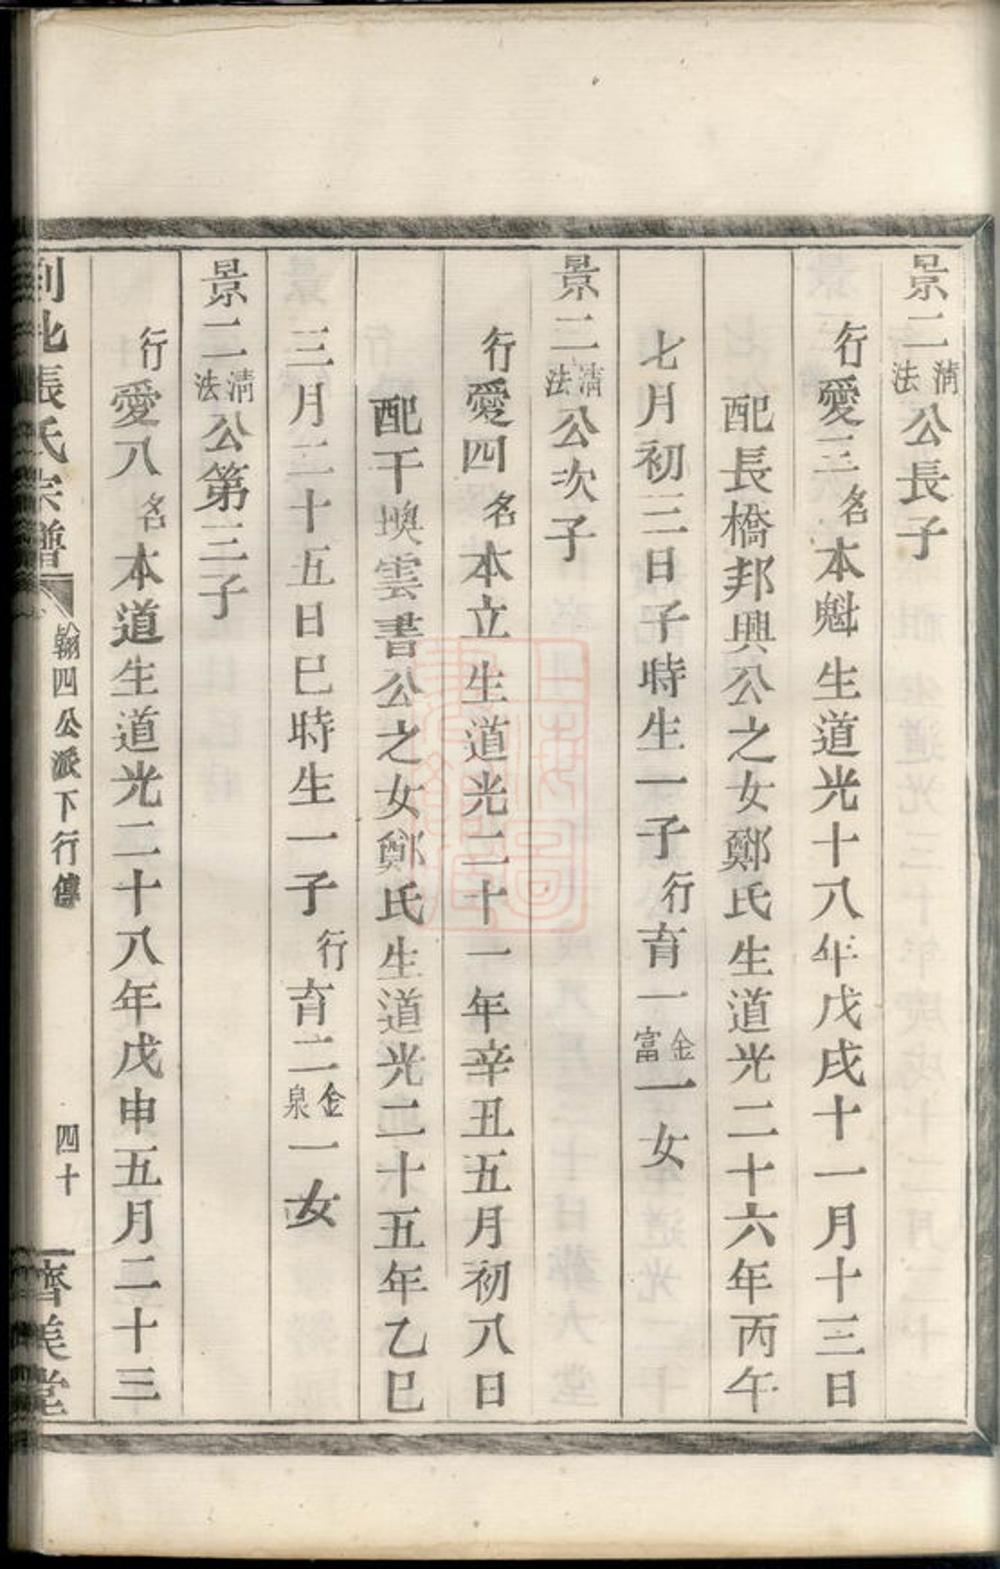 景二清法公長子
行愛三名本魁生道光十八年戊戌十一月十三日
配長橋邦興公之女鄭氏生道光二十六年丙午
七月初三日子時生一子行育一金富一女
景二清法公次子
行愛四名本立生道光二十一年辛丑五月初八日
配干墺雲書公之女鄭氏生道光二十五年乙巳
三月二十五日巳時生一子行育二金泉一女
景二清法公第三子
行愛八名本道生道光二十八年戊申五月二十三
張氏宗譜 翰四公派下行傳 四十 齊美堂